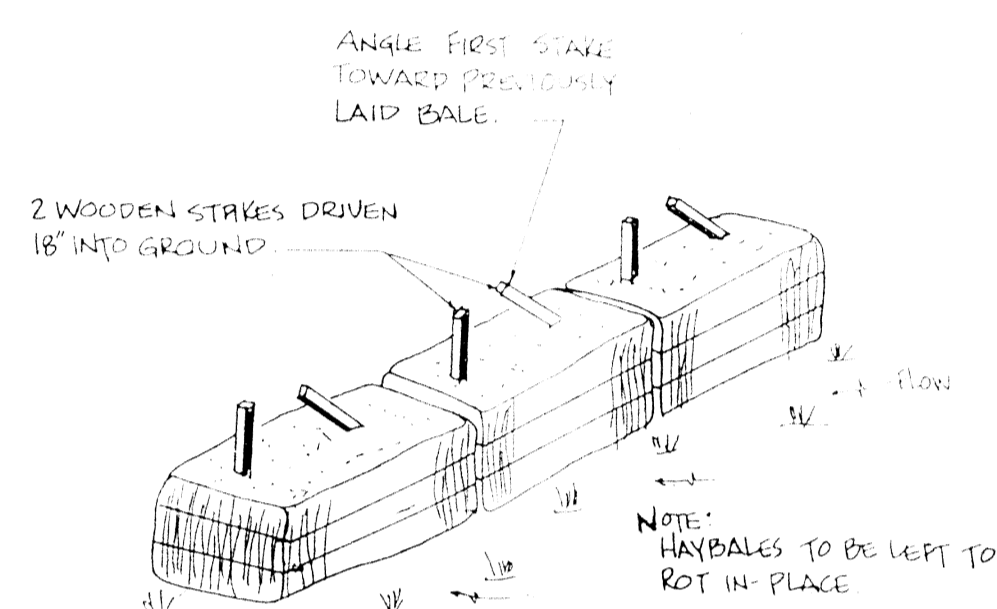 ANGLE FIRST STAKE
TOWARD PREVIOUSLY
LAID BALE.
2 WOODEN STAKES DRIVEN
18" INTO GROUND.
FLOW
NOTE:
HAYBALES TO BE LEFT TO
ROT IN-PLACE.